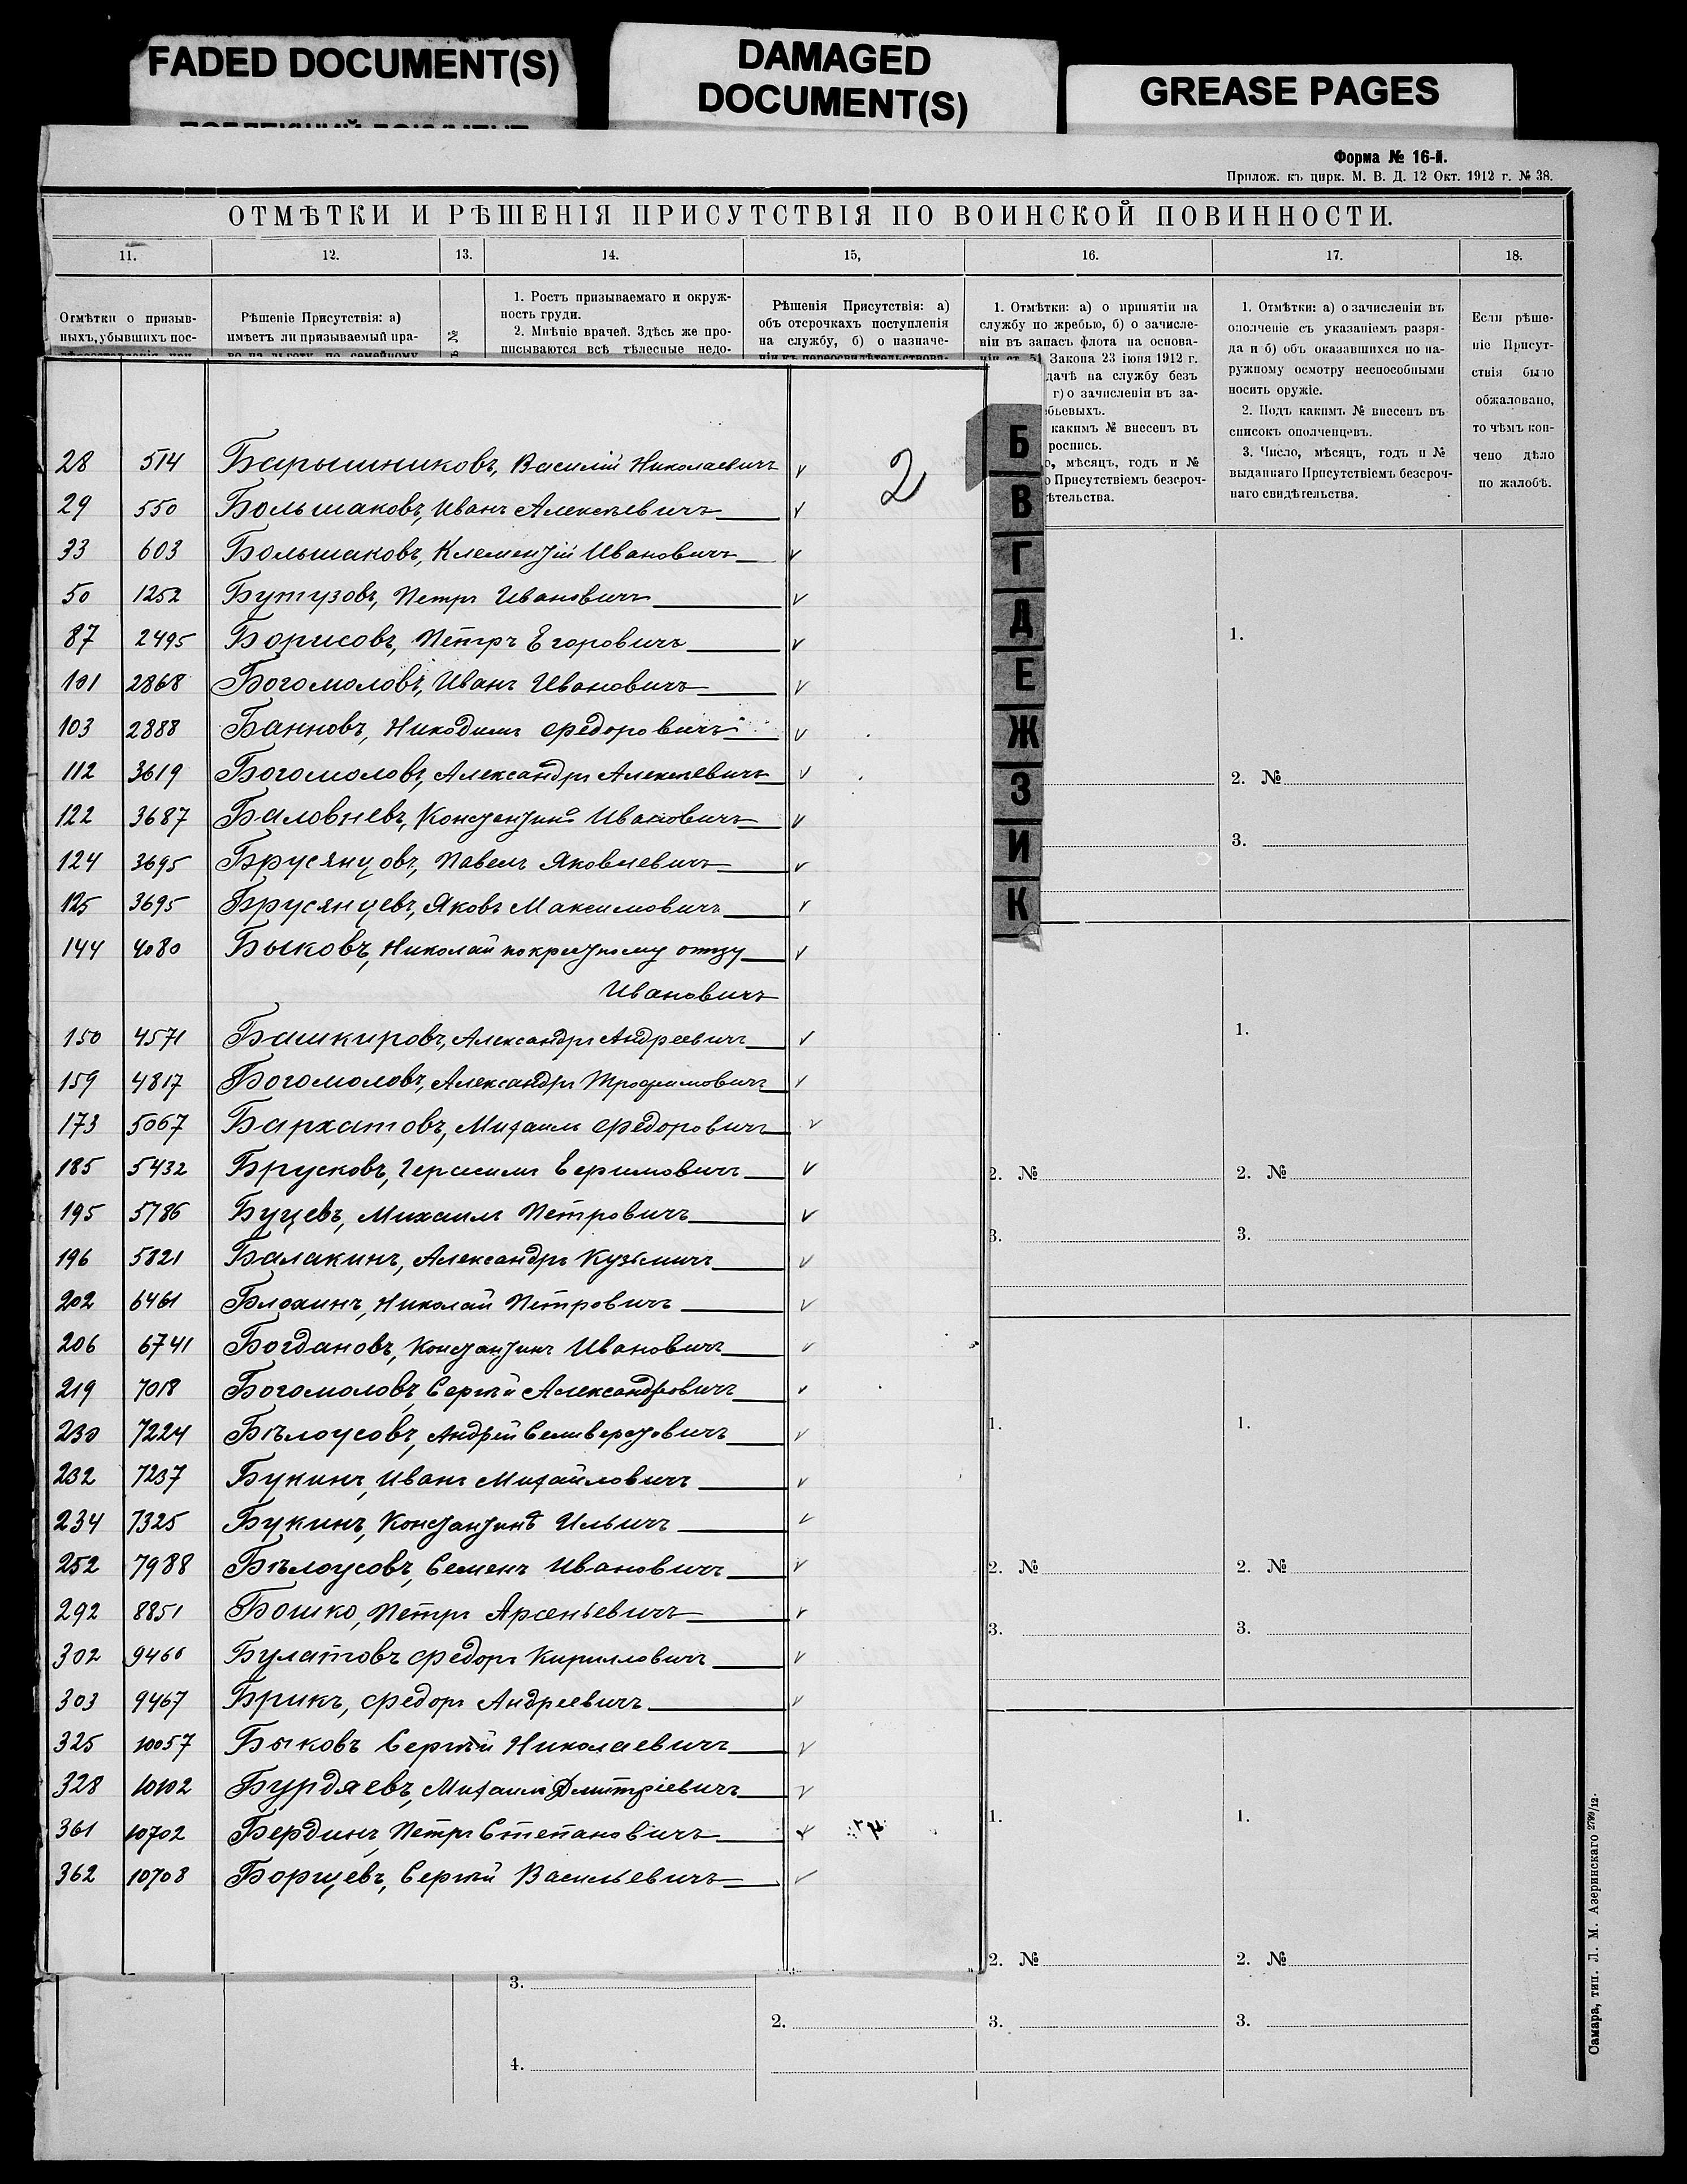 FADED DOCUMENT(S)
DAMAGED
DOCUMENT(S)
GREASE PAGES
Форма № 16-й.
Прилож. къ цирк. М. В. Д. 12 Окт. 1912 г. № 38.
ОТМѢТКИ И РѢШЕНІЯ ПРИСУТСТВІЯ ПО ВОИНСКОЙ ПОВИННОСТИ.
11. 12. 13. 14. 15, 16. 17. 18.
Отмѣтки о призыв-
ныхъ, убывшихъ пос-
Рѣшеніе Присутствія: а)
имѣетъ ли призываемый пра-
во на льготу по семейному
№
1. Ростъ призываемаго и окруж-
ность груди.
2. Мнѣніе врачей. Здѣсь же про-
писываются всѣ тѣлесные недо-
Рѣшенія Присутствія: а)
объ отсрочкахъ поступленія
на службу, б) о назначе-
ніи къ переосвидѣтельствова-
1. Отмѣтки: а) о принятіи на
службу по жребью, б) о зачисле-
ніи въ запасъ флота на основа-
ніи ст. 51 Закона 23 іюня 1912 г.
дачѣ на службу безъ
г) о зачисленіи въ за-
бьевыхъ.
какимъ № внесенъ въ
роспись.
о, мѣсяцъ, годъ и №
о Присутствіемъ безсроч-
ѣтельства.
1. Отмѣтки: а) о зачисленіи въ
ополченіе съ указаніемъ разря-
да и б) объ оказавшихся по на-
ружному осмотру неспособными
носить оружіе.
2. Подъ какимъ № внесенъ въ
списокъ ополченцевъ.
3. Число, мѣсяцъ, годъ и №
выданнаго Присутствіемъ безсроч-
наго свидѣтельства.
Если рѣше-
ніе Присут-
ствія было
обжаловано,
то чѣмъ кон-
чено дѣло
по жалобѣ.
2
28 514 Барышниковъ, Василій Николаевичъ v
29 550 Большаковъ, Иванъ Алексѣевичъ v
33 603 Большаковъ, Клементій Ивановичъ v
50 1252 Бутузовъ, Петръ Ивановичъ v
87 2495 Борисовъ, Петръ Егоровичъ v
101 2868 Богомоловъ, Иванъ Ивановичъ v
103 2888 Банновъ, Никодимъ Федоровичъ v
112 3619 Богомоловъ, Александръ Алексѣевичъ v
122 3687 Баловневъ, Константинъ Ивановичъ v
124 3695 Брусянцовъ, Павелъ Яковлевичъ v
125 3695 Брусянцевъ, Яковъ Максимовичъ v
144 4080 Быковъ, Николай по крестному отцу v
Ивановичъ
150 4571 Башкировъ, Александръ Андреевичъ v
159 4817 Богомоловъ, Александръ Трофимовичъ v
173 5067 Бархатовъ, Михаилъ Федоровичъ v
185 5432 Брусковъ, Герасимъ Ефимовичъ v
195 5786 Буцевъ, Михаилъ Петровичъ v
196 5821 Балакинъ, Александръ Кузьмичъ v
202 6461 Блохинъ, Николай Петровичъ v
206 6741 Богдановъ, Константинъ Ивановичъ v
219 7018 Богомоловъ, Сергѣй Александровичъ v
230 7224 Бѣлоусовъ, Андрей Селиверстовичъ v
232 7237 Букинъ, Иванъ Михайловичъ v
234 7325 Букинъ, Константинъ Ильичъ v
252 7988 Бѣлоусовъ, Семенъ Ивановичъ v
292 8851 Бошко, Петръ Арсеньевичъ v
302 9466 Булатовъ Федоръ Кирилловичъ v
303 9467 Брикъ, Федоръ Андреевичъ v
325 10057 Быковъ Сергѣй Николаевичъ v
328 10102 Бурдяевъ, Михаилъ Дмитріевичъ v
361 10702 Бердинъ, Петръ Степановичъ v
362 10708 Борщевъ, Сергѣй Васильевичъ v
Б
В
Г
Д
Е
Ж
З
И
К
1.
2. №
3.
1.
2. № 2. №
3. 3.
1. 1.
2. № 2. №
3. 3.
1. 1.
2. № 2. №
3. 2. 3. 3.
4.
Самара, тип. Л. М. Азеринскаго 2799/12.